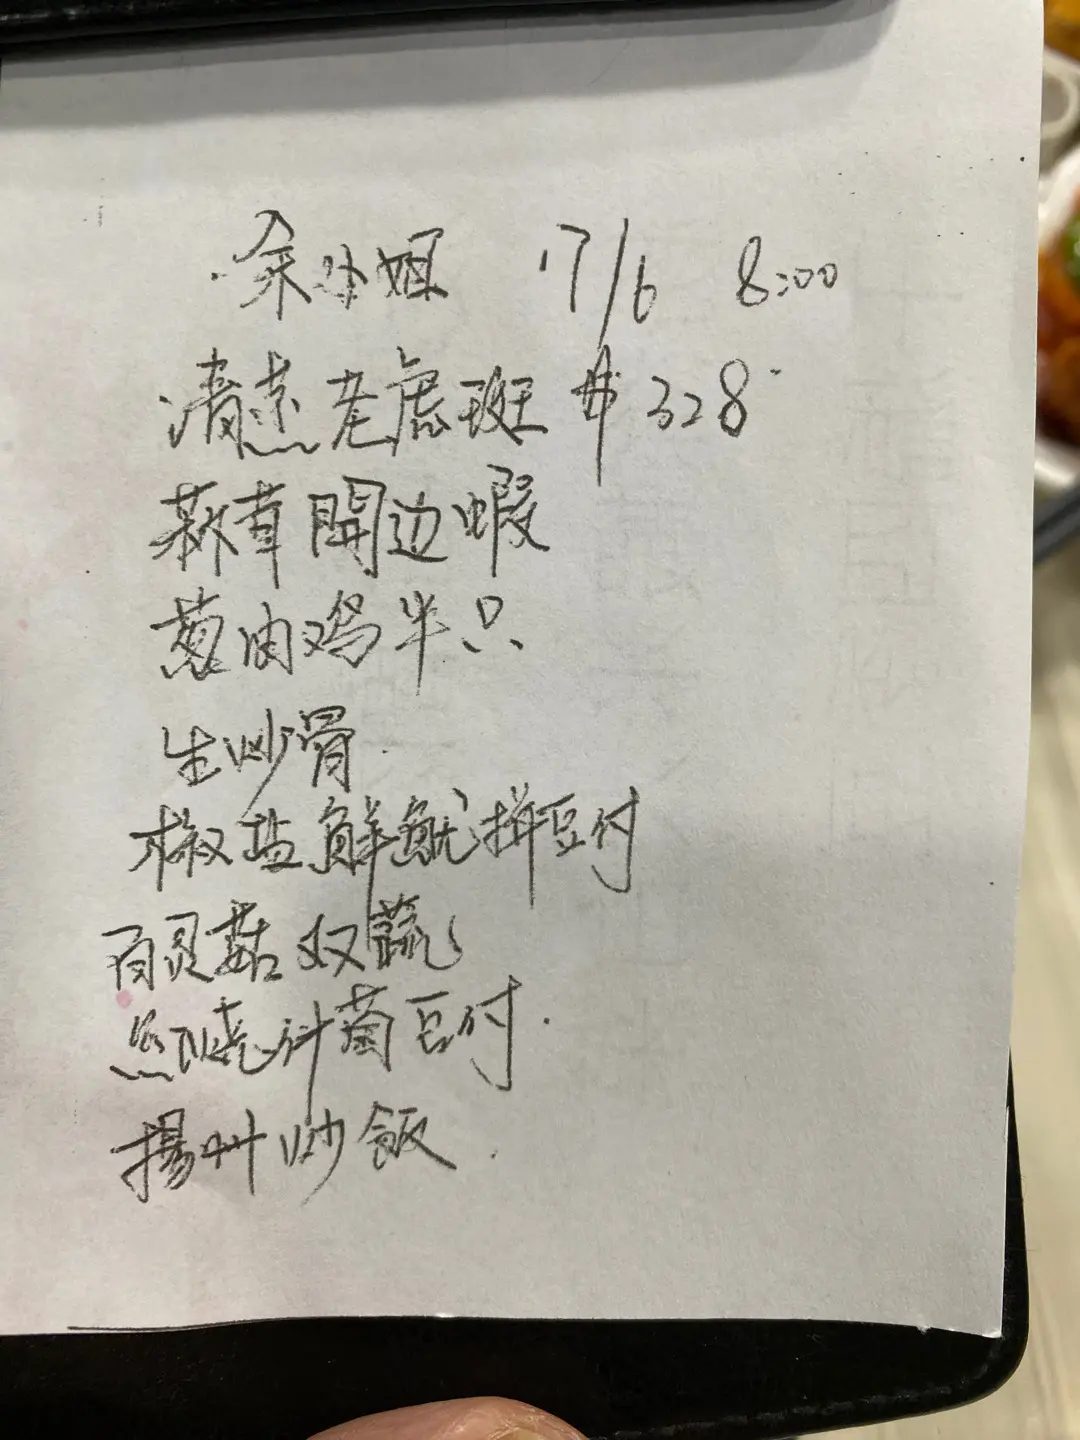 余小姐 17/6 8:00
清蒸老虎斑 $328
蒜茸開边蝦
葱油鸡半只
生炒骨
椒盐鮮魷拼豆付
百灵菇扒蔬
红烧什菌豆付
揚州炒飯